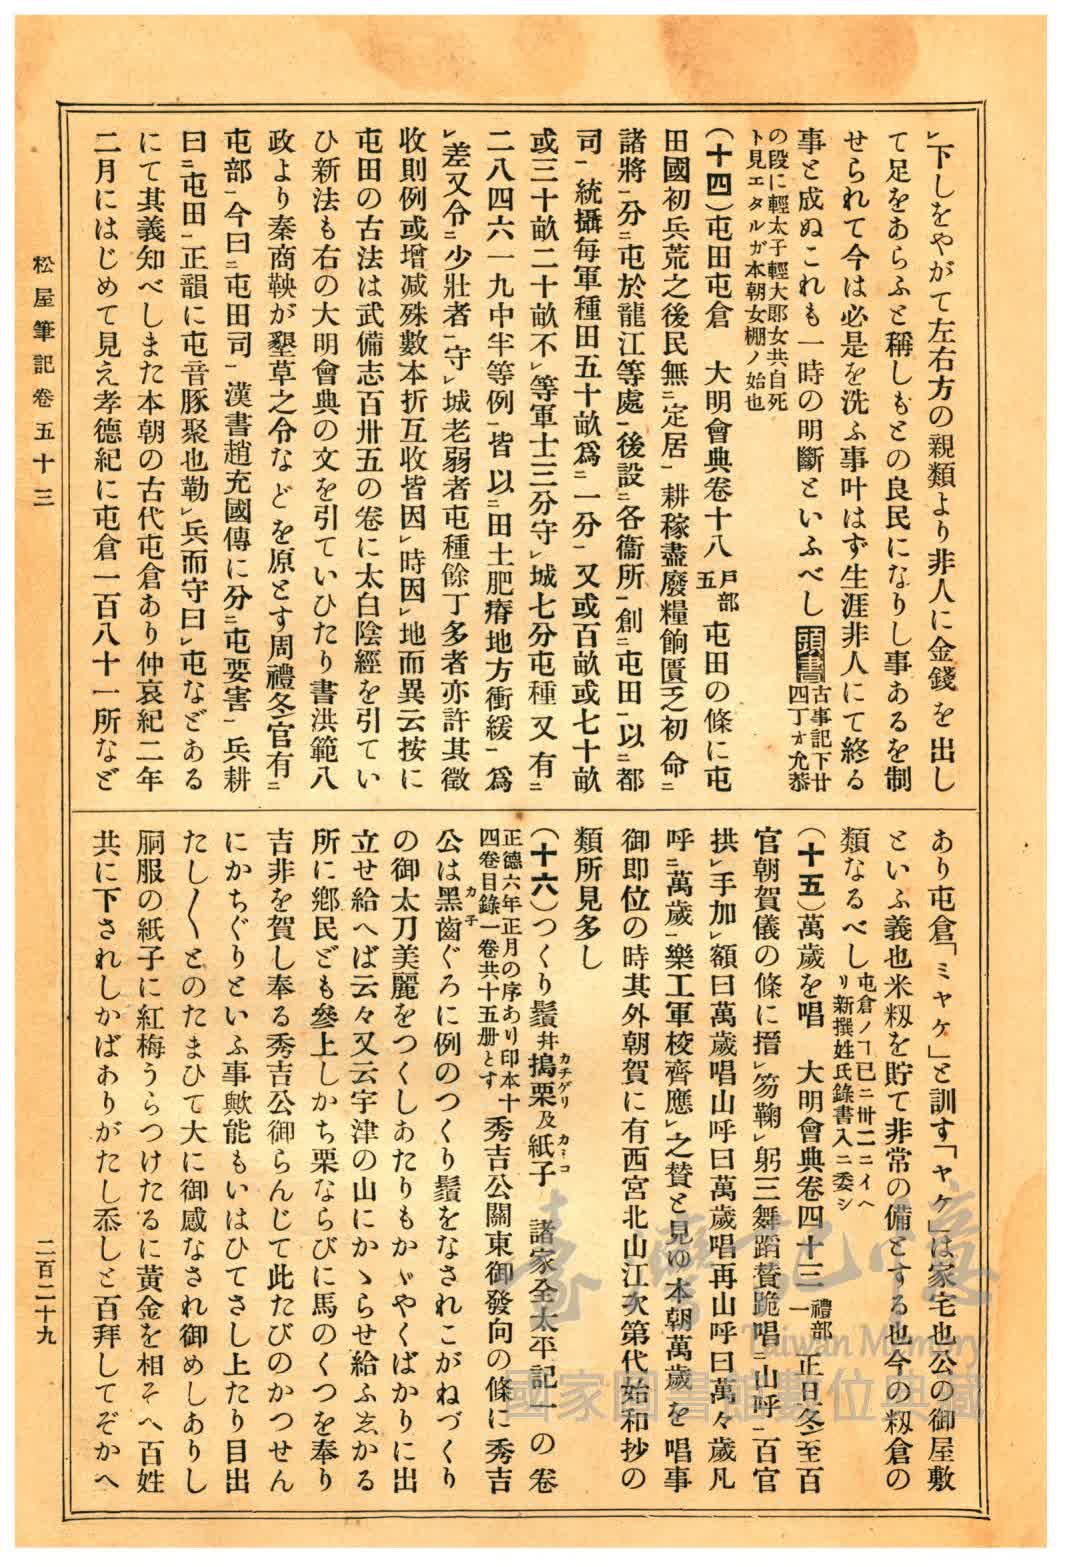 レ下しをやがて左右方の親類より非人に金錢を出し
て足をあらふと稱しもとの良民になりし事あるを制
せられて今は必是を洗ふ事叶はず生涯非人にて終る
事と成ぬこれも一時の明斷といふべし 頭書 古事記下廿四丁オ允恭
の段に輕太子輕大郎女共自死ト見エタルガ本朝女棚ノ始也
(十四)屯田屯倉 大明會典卷十八戸部五屯田の條に屯
田國初兵荒之後民無ニ定居一耕稼盡廢糧餉匱乏初命ニ
諸將一分ニ屯於龍江等處一後設ニ各衞所一創ニ屯田一以ニ都
司一統攝每軍種田五十畝爲ニ一分一又或百畝或七十畝
或三十畝二十畝不レ等軍士三分守レ城七分屯種又有ニ
二八四六一九中半等例一皆以ニ田土肥瘠地方衝緩一爲
レ差又令ニ少壯者一守レ城老弱者屯種餘丁多者亦許其徵
收則例或增減殊數本折互收皆因レ時因レ地而異云按に
屯田の古法は武備志百卅五の卷に太白陰經を引てい
ひ新法も右の大明會典の文を引ていひたり書洪範八
政より秦商鞅が墾草之令などを原とす周禮冬官有ニ
屯部一今曰ニ屯田司一漢書趙充國傳に分ニ屯要害一兵耕
曰ニ屯田一正韻に屯音豚聚也勒レ兵而守曰レ屯などある
にて其義知べしまた本朝の古代屯倉あり仲哀紀二年
二月にはじめて見え孝德紀に屯倉一百八十一所など
あり屯倉「ミヤケ」と訓す「ヤケ」は家宅也公の御屋敷
といふ義也米籾を貯て非常の備とする也今の籾倉の
類なるべし屯倉ノヿ已ニ卅二ニイヘリ新撰姓氏錄書入ニ委シ
(十五)萬歲を唱 大明會典卷四十三禮部一正旦冬至百
官朝賀儀の條に搢レ笏鞠レ躬三舞蹈贊跪唱ニ山呼一百官
拱レ手加レ額曰萬歲唱山呼曰萬歲唱再山呼曰萬々歲凡
呼ニ萬歲一樂工軍校齊應レ之贊と見ゆ本朝萬歲を唱事
御即位の時其外朝賀に有西宮北山江次第代始和抄の
類所見多し
(十六)つくり鬚幷搗栗カチグリ及紙子カミコ 諸家全太平記一の卷
正德六年正月の序あり印本十四卷目錄一卷共十五册とす 秀吉公關東御發向の條に秀吉
公は黑齒カネぐろに例のつくり鬚をなされこがねづくり
の御太刀美麗をつくしあたりもかゞやくばかりに出
立せ給へば云々又云宇津の山にかゝらせ給ふ玆かる
所に鄕民ども參上しかち栗ならびに馬のくつを奉り
吉非を賀し奉る秀吉公御らんじて此たびのかつせん
にかちぐりといふ事歟能もいはひてさし上たり目出
たし〱とのたまひて大に御感なされ御めしありし
胴服の紙子に紅梅うらつけたるに黃金を相そへ百姓
共に下されしかばありがたし忝しと百拜してぞかへ
松屋筆記卷五十三
二百二十九
臺灣記憶
Taiwan Memory
國家圖書館數位典藏